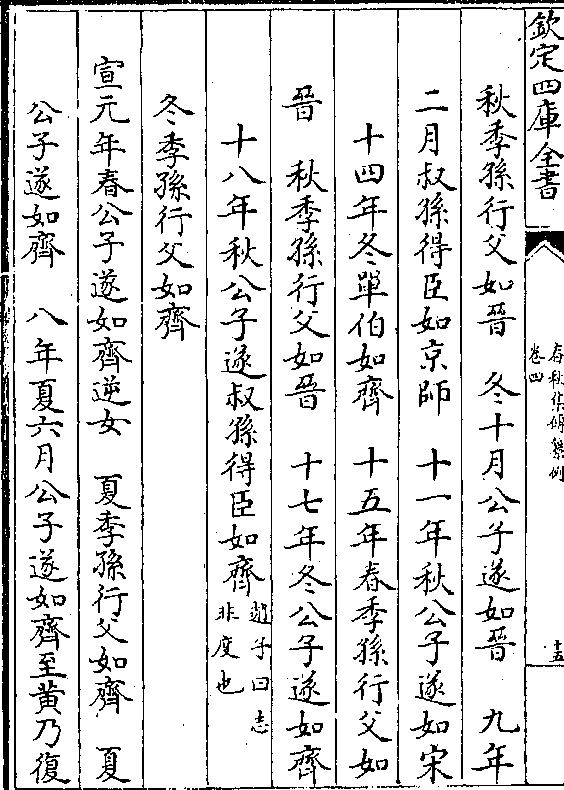 欽定四庫全書
春秋集傳纂例
卷四
十五
秋季孫行父如晉　冬十月公子遂如晉　九年
二月叔孫得臣如京師　十一年秋公子遂如宋
十四年冬單伯如齊　十五年春季孫行父如
晉　秋季孫行父如晉　十七年冬公子遂如齊
十八年秋公子遂叔孫得臣如齊趙子曰志
非度也
冬季孫行父如齊
宣元年春公子遂如齊逆女　夏季孫行父如齊　夏
公子遂如齊　八年夏六月公子遂如齊至黃乃復